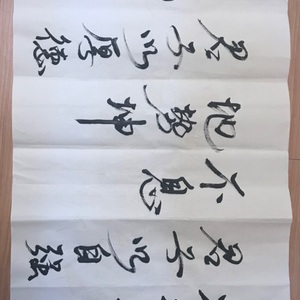 君子以自强
不息
地势坤
君子以厚德